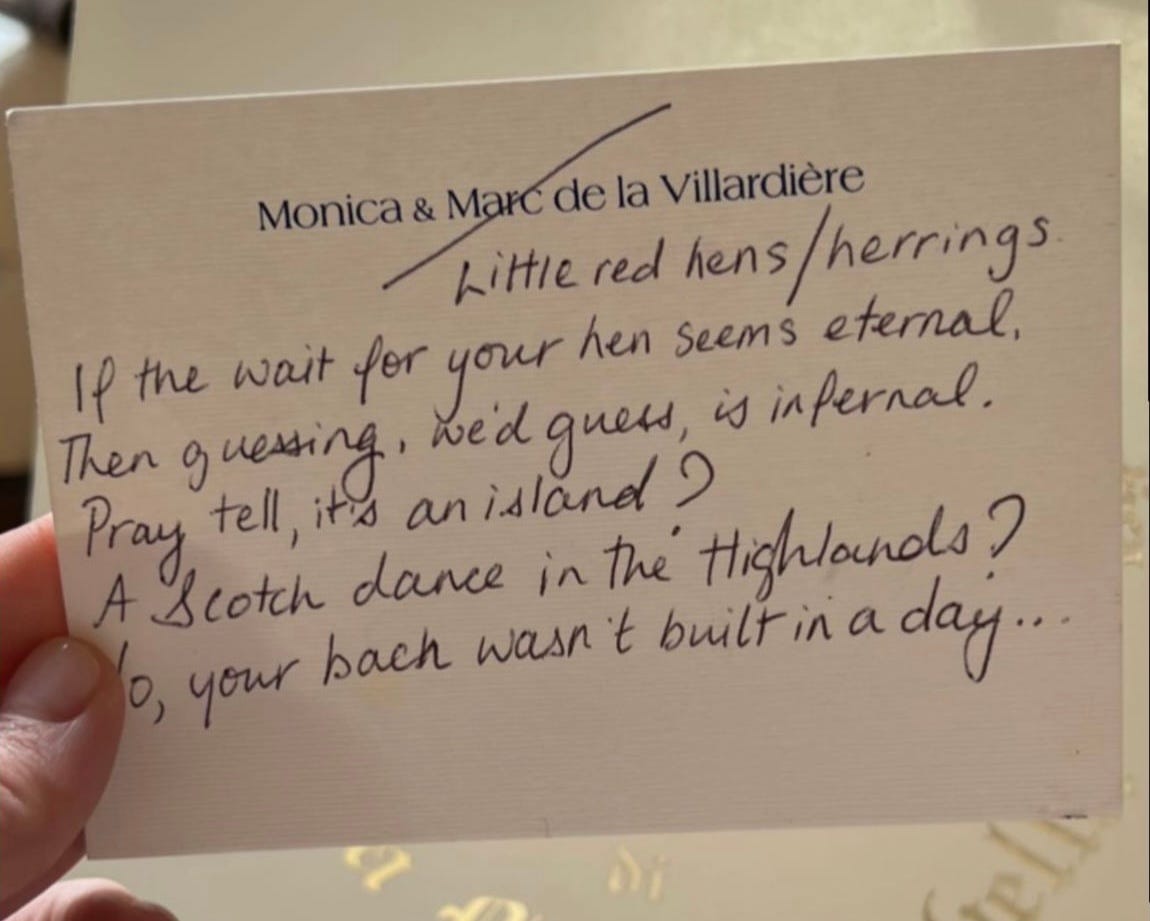 Monica & Marc de la Villardière
Little red hens/herrings.
If the wait for your hen seems eternal,
Then guessing, we'd guess, is infernal.
Pray tell, it's an island?
A Scotch dance in the Highlands?
your bach wasn't built in a day...
di